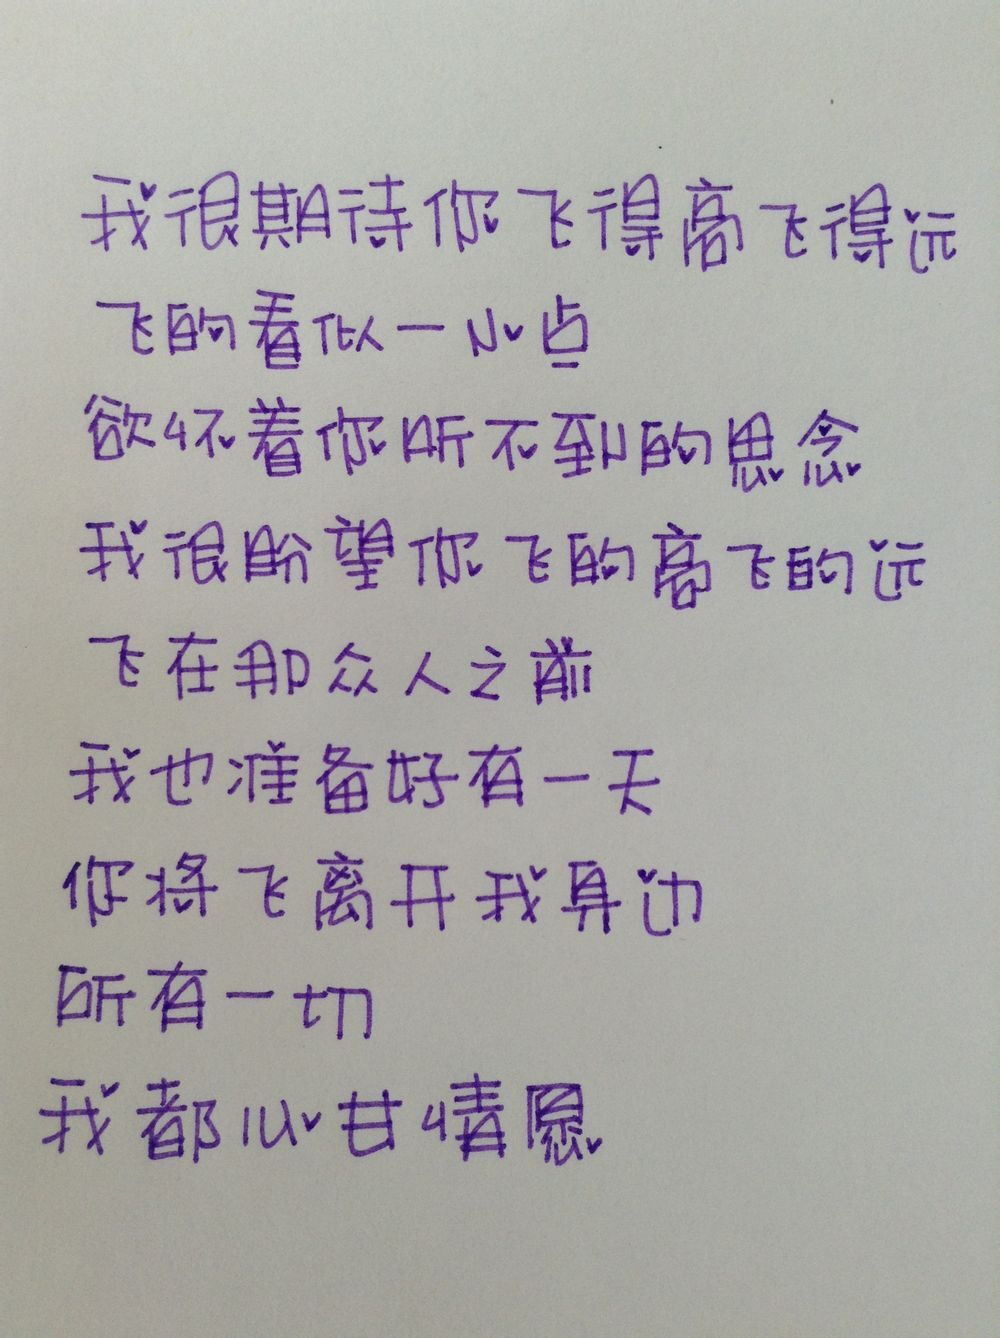 我很期待你飞得高飞得远
飞的看似一小点
欲怀着你听不到的思念
我很盼望你飞的高飞的远
飞在那众人之前
我也准备好有一天
你将飞离开我身边
所有一切
我都心甘情愿